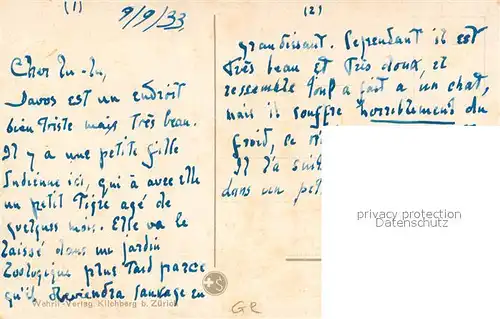 (1)
9/9/33
Cher Lu-Lu,
Davos est un endroit
bien triste mais très beau.
Il y à une petite fille
Indienne ici, qui à avec elle
un petit Tigre agé de
quelques mois. Elle va le
laissé dans un jardin
Zoologique plus tard parce
qu'il deviendra sauvage en
(2)
grandissant. Cependant il est
très beau et très doux, et
ressemble tout a fait a un chat,
mais il souffre horriblement du
froid, ce
Il l'a
dans un
privacy protection
Datenschutz
Wehrli-Verlag, Kilchberg b. Zürich
GR